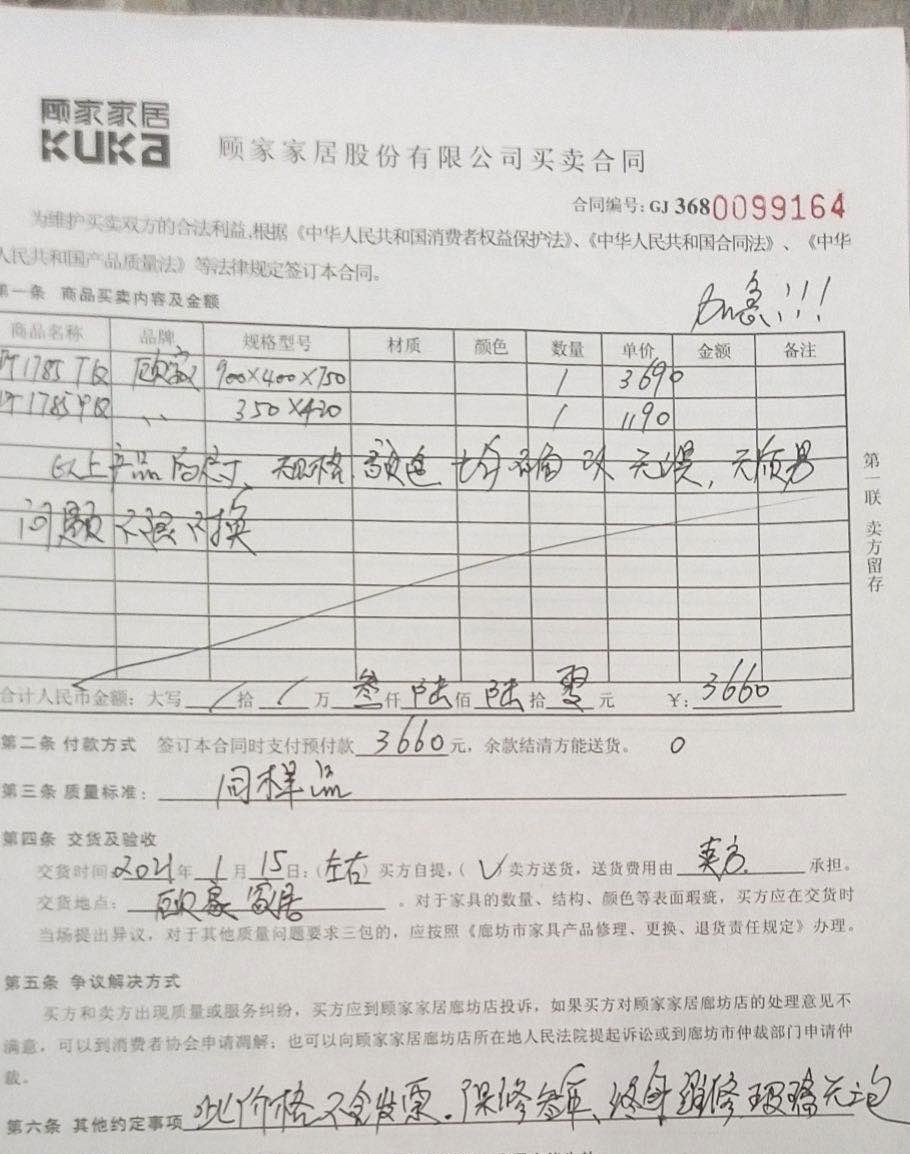 顾家家居
KUKa
顾家家居股份有限公司买卖合同
合同编号: GJ 3680099164
为维护买卖双方的合法利益,根据《中华人民共和国消费者权益保护法》、《中华人民共和国合同法》、《中华
人民共和国产品质量法》等法律规定签订本合同。
加急!!!
第一条 商品买卖内容及金额
商品名称 品牌 规格型号 材质 颜色 数量 单价 金额 备注
PT1785 顾家 900×400×750 1 3690
PT1785 350×420 1 1190
以上产品的尺寸、规格、颜色均确认无误,无质量
问题不退不换
第一联 卖方留存
合计人民币金额: 大写 / 拾 / 万 叁 仟 陆 佰 陆 拾 零 元 ¥: 3660
第二条 付款方式 签订本合同时支付预付款 3660 元, 余款结清方能送货。 0
第三条 质量标准: 同样品
第四条 交货及验收
交货时间 2021 年 1 月 15 日: (左右) 买方自提, (√ 卖方送货, 送货费用由 卖方 承担。
交货地点: 顾家家居 。对于家具的数量、结构、颜色等表面瑕疵, 买方应在交货时
当场提出异议, 对于其他质量问题要求三包的, 应按照《廊坊市家具产品修理、更换、退货责任规定》办理。
第五条 争议解决方式
买方和卖方出现质量或服务纠纷, 买方应到顾家家居廊坊店投诉, 如果买方对顾家家居廊坊店的处理意见不
满意, 可以到消费者协会申请凋解; 也可以向顾家家居廊坊店所在地人民法院提起诉讼或到廊坊市仲裁部门申请仲
裁。
第六条 其他约定事项 此价格不含发票。保修叁年、终身维修 玻璃无三包